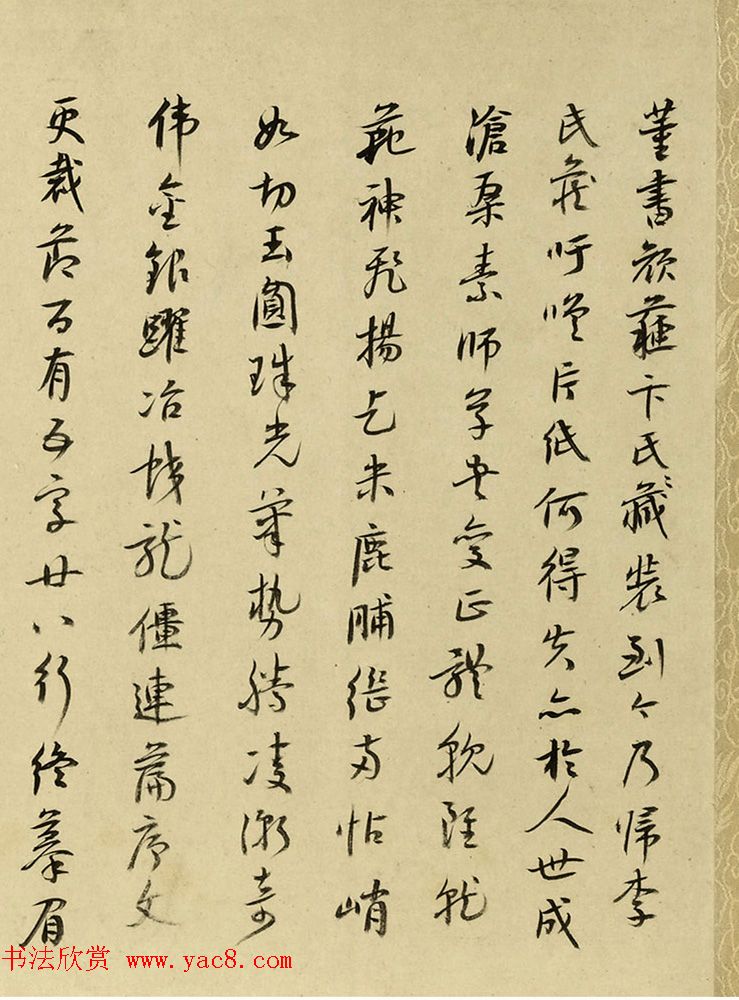 董書顏卞氏藏裝到今乃歸李
氏藏吁嗟片紙何得失亦於人世成
滄桑素師草書變正體貌雖就
範神飛揚乞米鹿脯繼兩帖峭
如切玉圓珠光筆勢騰凌漸奇
偉金銀躍冶蛟龍僵連篇序文
更裁節百有五字廿八行終摹眉
书法欣赏 www.yac8.com